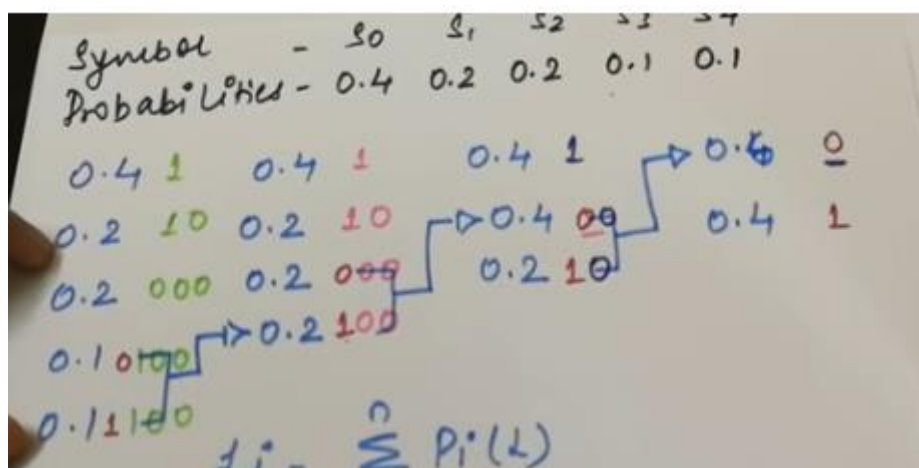 Symbol - S0 S1 S2 S3 S4
Probabilities - 0.4 0.2 0.2 0.1 0.1
0.4 1 0.4 1 0.4 1 0.6 0
0.2 10 0.2 10 0.4 00 0.4 1
0.2 000 0.2 000 0.2 10
0.1 0100 0.2 100
0.1 1100
n
Σ Pi(L)